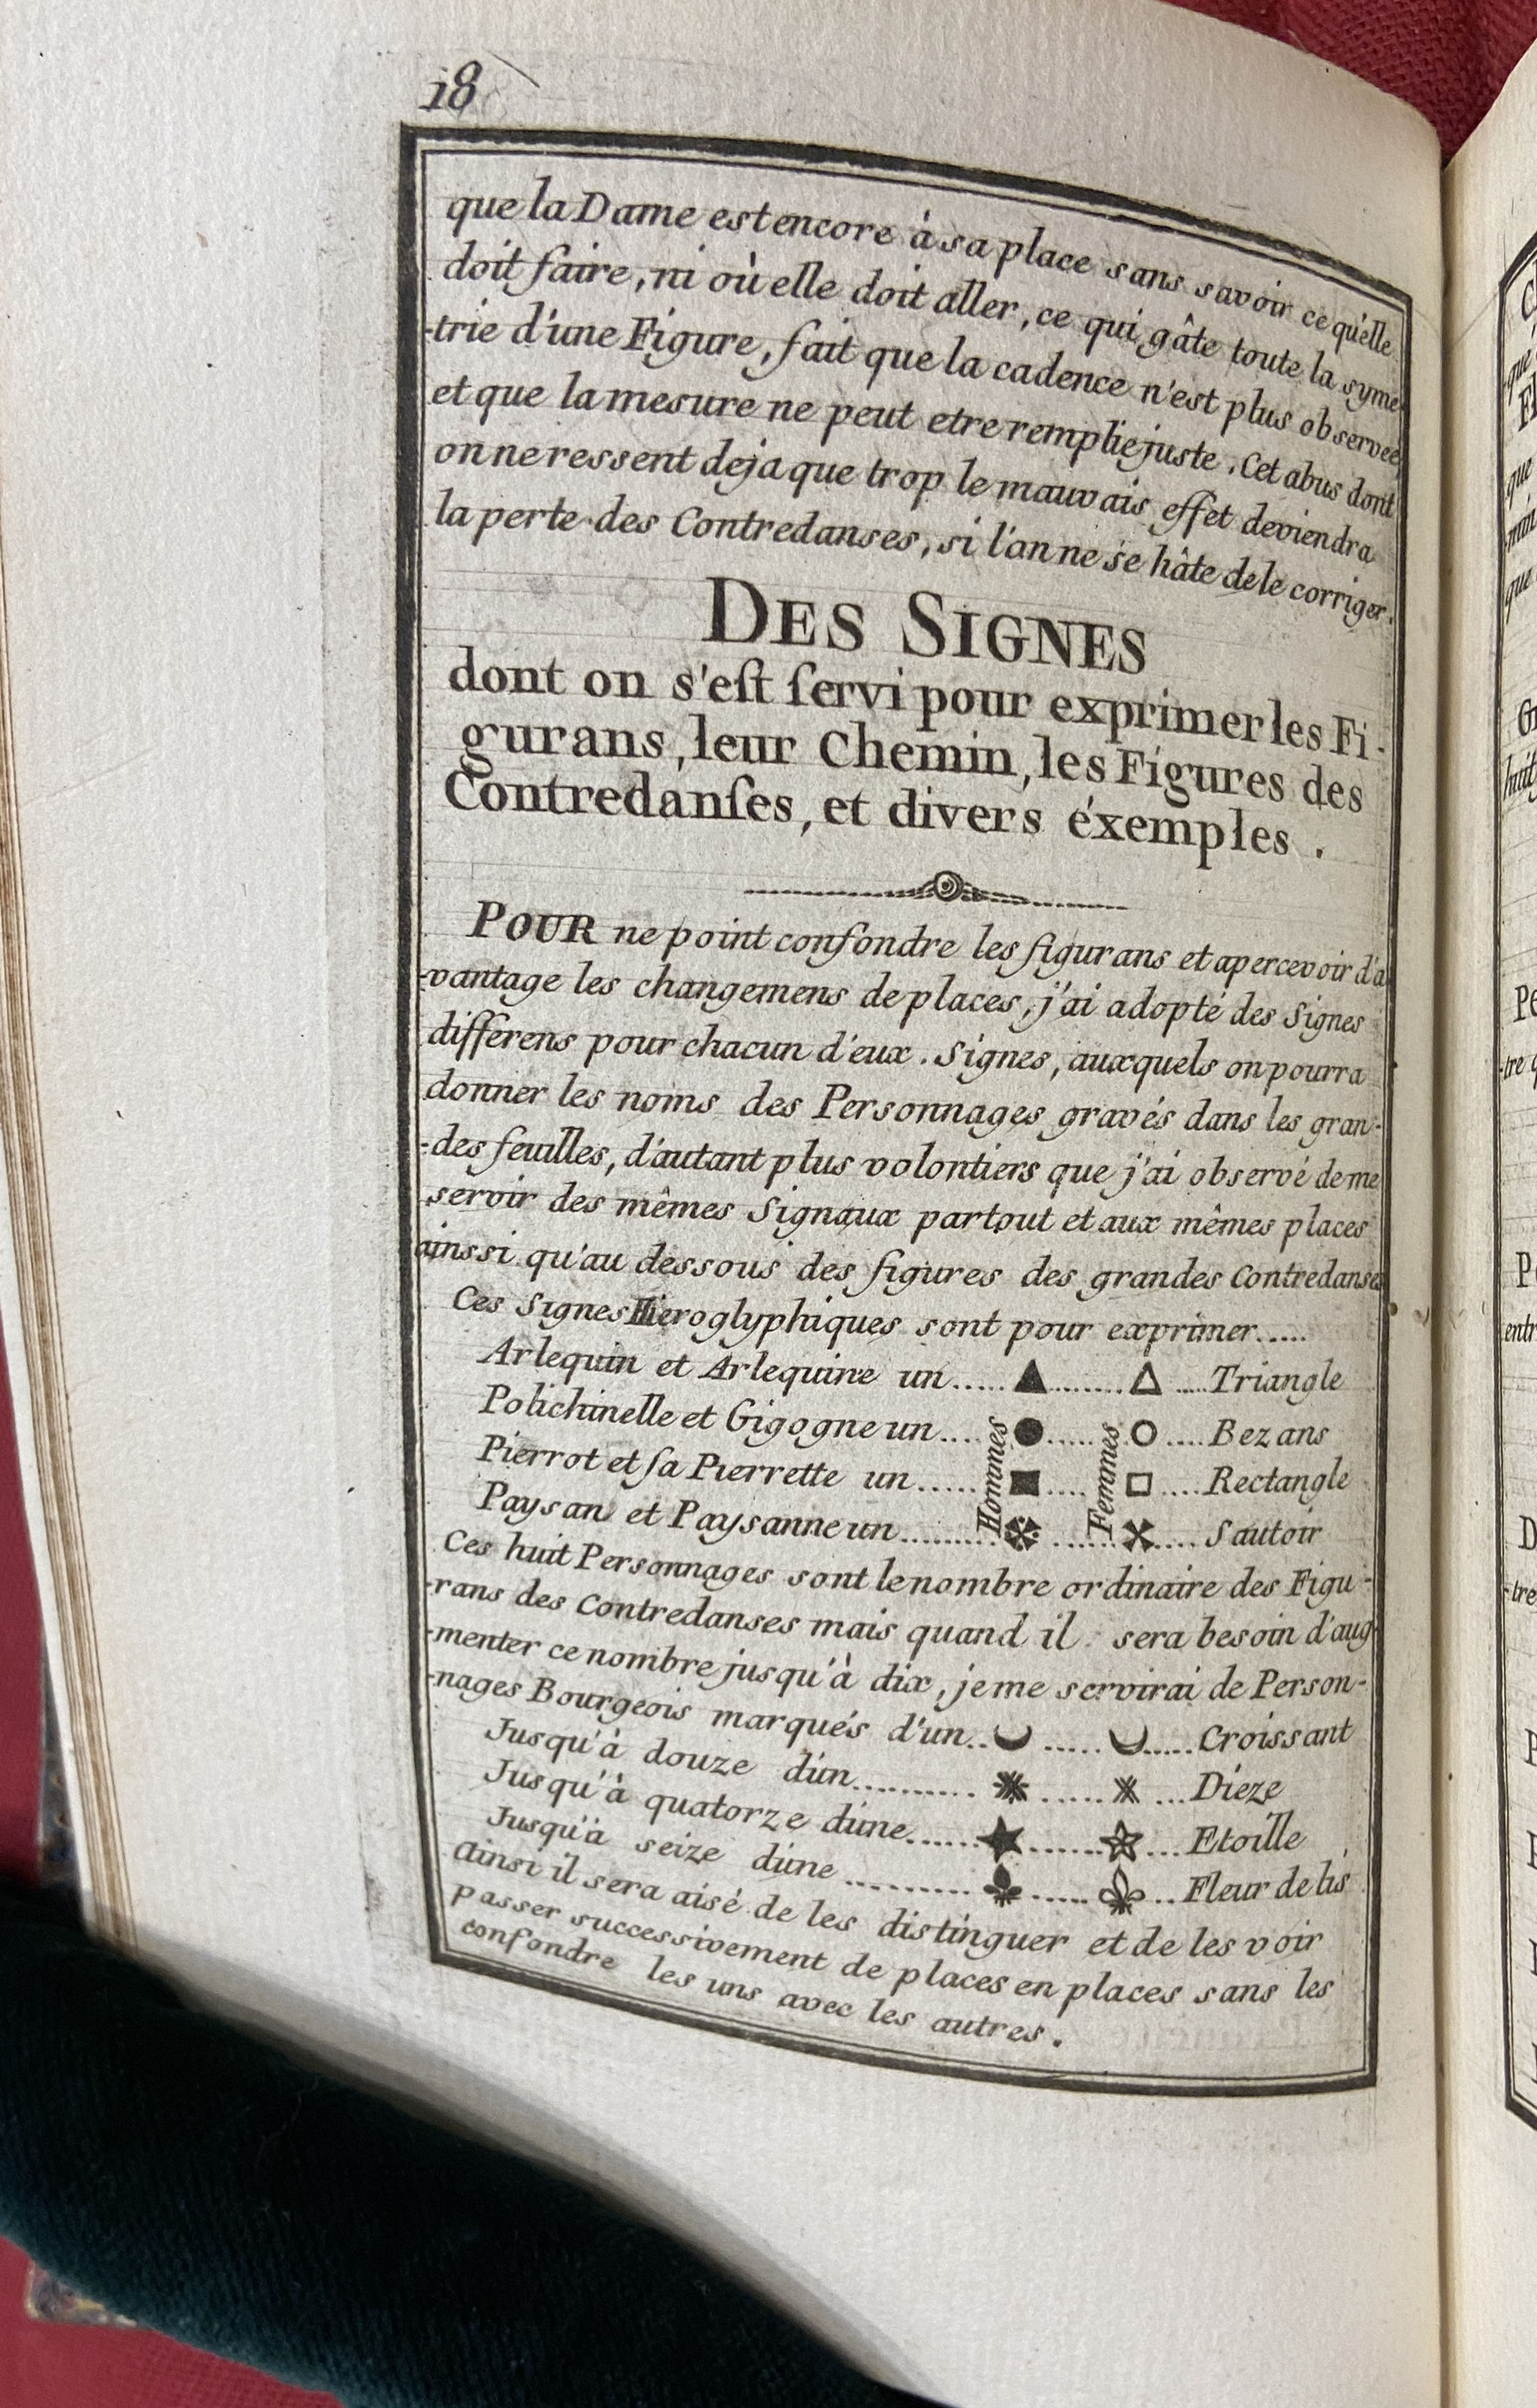 18
que la Dame est encore à sa place sans savoir ce qu'elle
doit faire, ni où elle doit aller, ce qui gâte toute la syme
-trie d'une Figure, fait que la cadence n'est plus observée
et que la mesure ne peut etre remplie juste. Cet abus dont
on ne ressent deja que trop le mauvais effet deviendra
la perte des Contredanses, si l'an ne se hâte de le corriger.
DES SIGNES
dont on s'eſt ſervi pour exprimer les Fi-
gurans, leur Chemin, les Figures des
Contredanſes, et divers éxemples.
POUR ne point confondre les figurans et apercevoir d'a
-vantage les changemens de places, j'ai adopté des Signes
differens pour chacun d'eux. Signes, auxquels on pourra
donner les noms des Personnages gravés dans les gran-
-des feuilles, d'autant plus volontiers que j'ai observé de me
servir des mêmes Signaux partout et aux mêmes places
ainssi qu'au dessous des figures des grandes Contredanses
Ces Signes Hieroglyphiques sont pour exprimer.....
Arlequin et Arlequine un.....▲........△.....Triangle
Polichinelle et Gigogne un....●......○....Bezans
Pierrot et ſa Pierrette un......■.....□....Rectangle
Paysan et Paysanne un.......... ...... ....Sautoir
Hommes
Femmes
Ces huit Personnages sont le nombre ordinaire des Figu-
-rans des Contredanses mais quand il sera besoin d'aug
-menter ce nombre jusqu'à dix, je me servirai de Person-
-nages Bourgeois marqués d'un.. ..... .....Croissant
Jusqu'à douze d'un........... ...... ...Dieze
Jusqu'à quatorze d'une......★.......☆...Etoille
Jusqu'à seize d'une.......... ..... ..Fleur de lis
Ainsi il sera aisé de les distinguer et de les voir
passer successivement de places en places sans les
confondre les uns avec les autres.